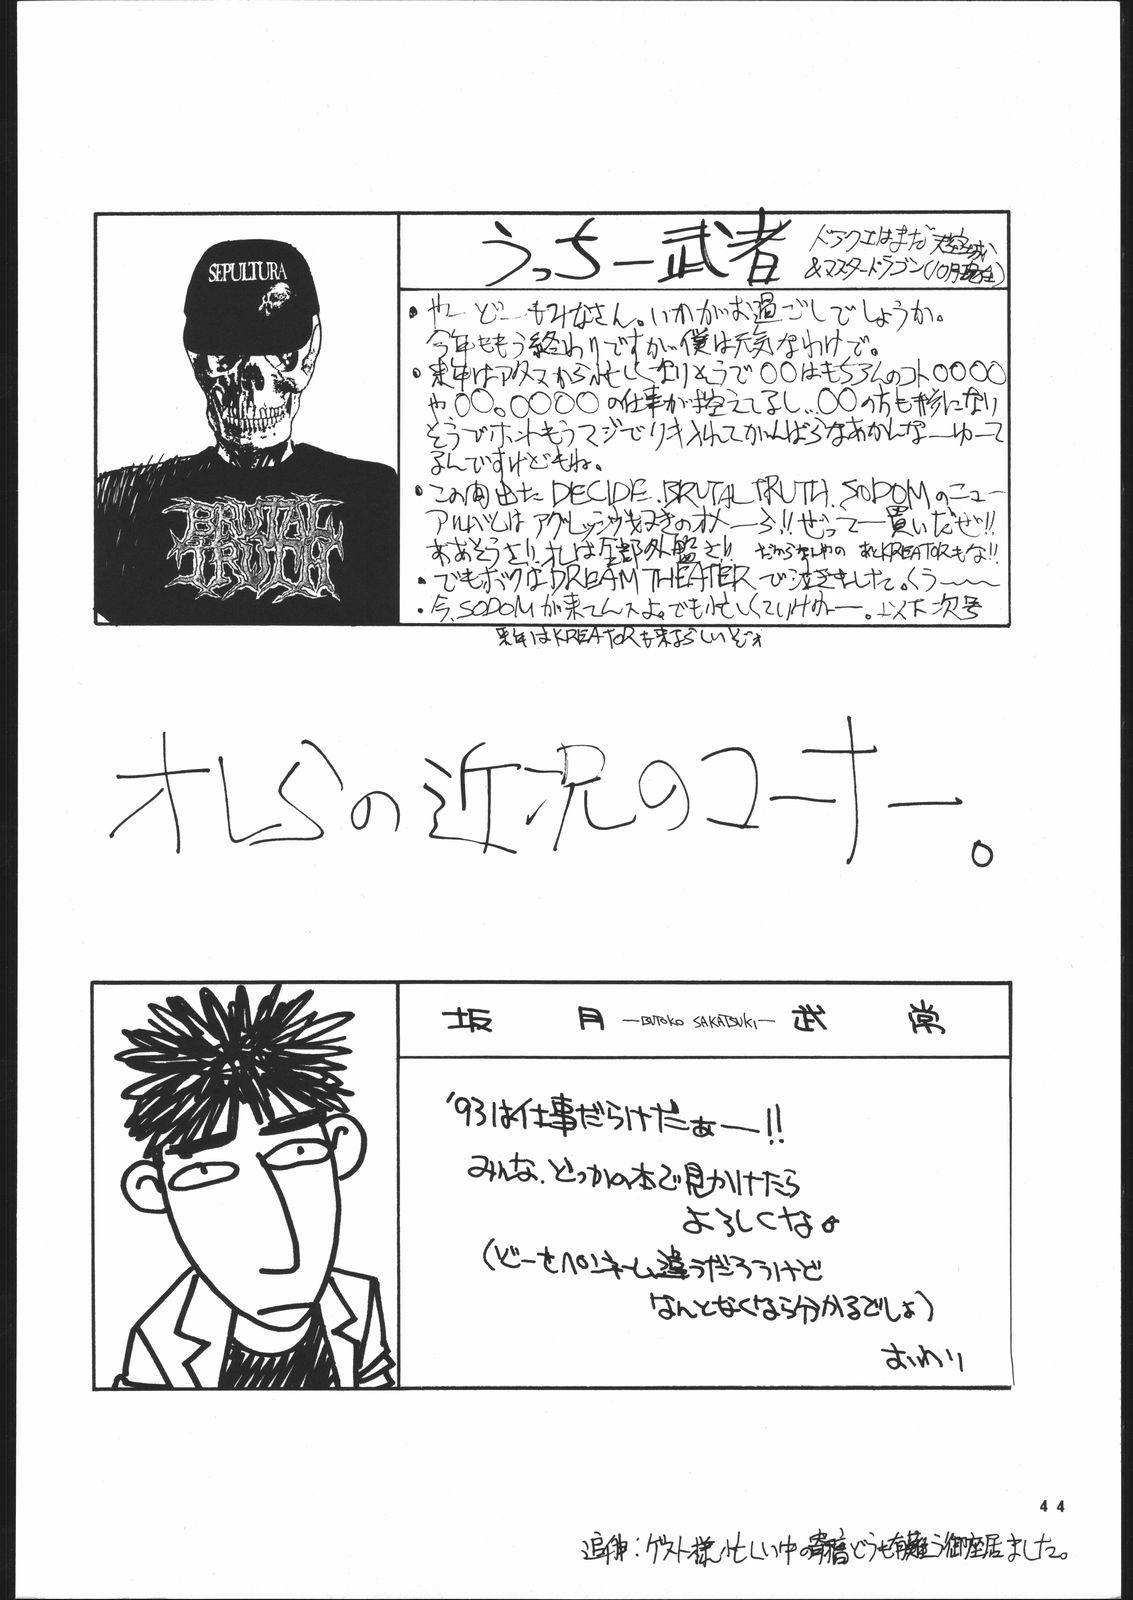 SEPULTURA
BRUTAL
TRUTH
うっちー武者
ドラクエはまだ天空城
&マスタードラゴン(10月現在)
・やーどーもみなさん。いかがお過ごしでしょうか。
今年ももう終わりですが僕は元気なわけで。
・来年はアタマから忙しくなりそうで〇〇はもちろんのコト〇〇〇〇
や、〇〇。〇〇〇〇の仕事が控えてるし…〇〇の方も本になり
そうでホントもうマジでリキ入れてがんばらなあかんなーゆーて
るんですけどもね。
・この間出た DECIDE、BRUTAL TRUTH、SODOMのニュー
アルバムはアグレッシヴ好きのオメーら!!ぜってー買いだぜ!!
ああそうさ!!オレは全部外盤さ!! だからなんやの あとKREATORもな!!
・でもボクなDREAM THEATERで泣きました。くうーー
・今、SODOMが来てんスよ。でも忙しくていけねー。以下次号
来年はKREATORも来るらしいぞォ
オレらの近況のコーナー。
坂月 —BUTOKO SAKATSUKI— 武常
'93は仕事だらけだぁー!!
みんな、どっかの本で見かけたら
よろしくな。
(どーせペンネーム違うだろうけど
なんとなくなら分かるでしょ)
おわり
44
追伸:ゲスト様、忙しい中の寄稿どうも有難う御座居ました。